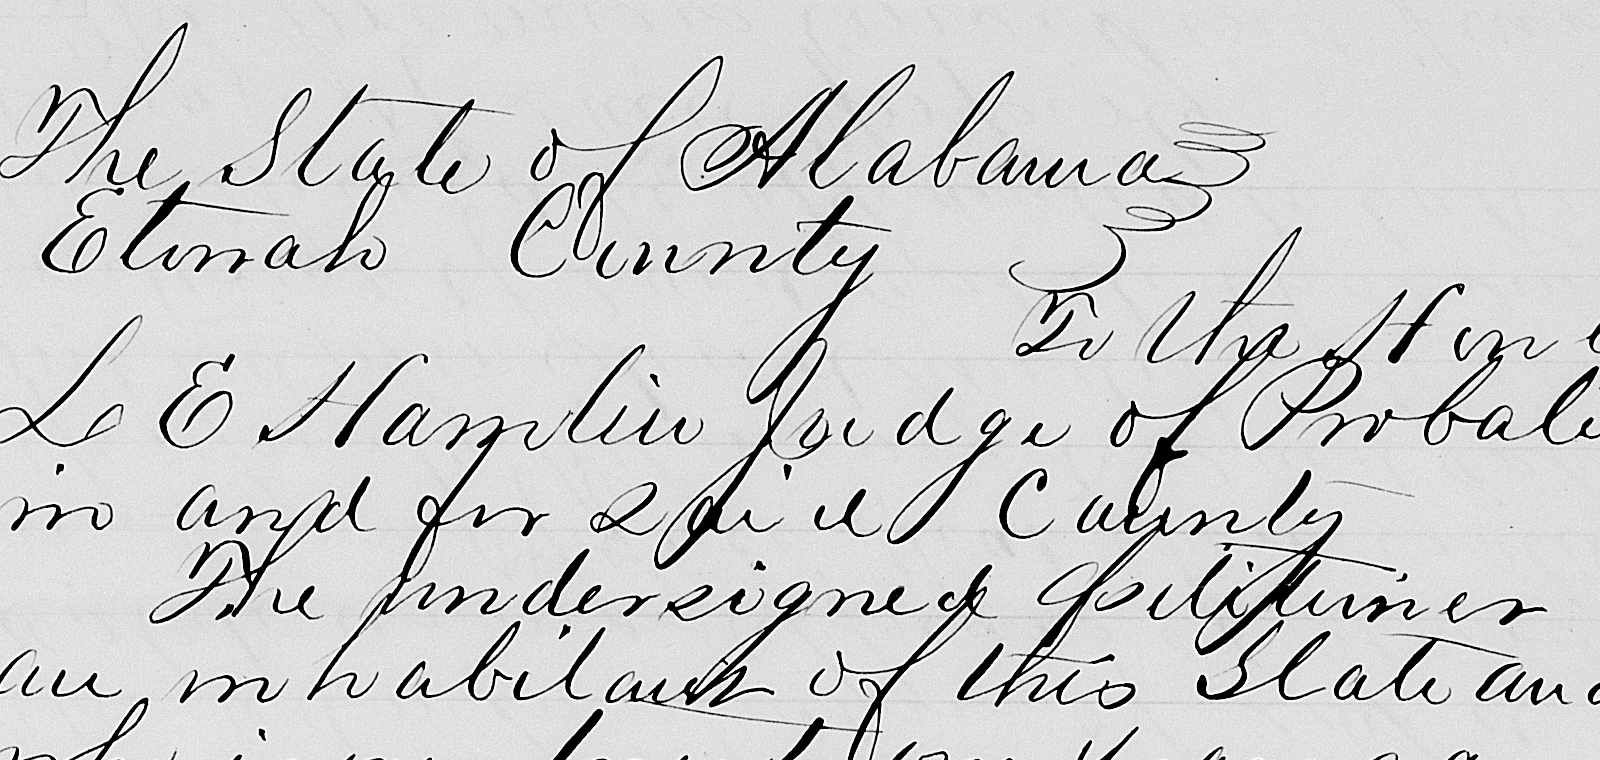 The State of Alabama
Etowah County
To the Hon
L E Hamlin Judge of Probate
in and for said County
The undersigned petitioner
an inhabitant of this State and